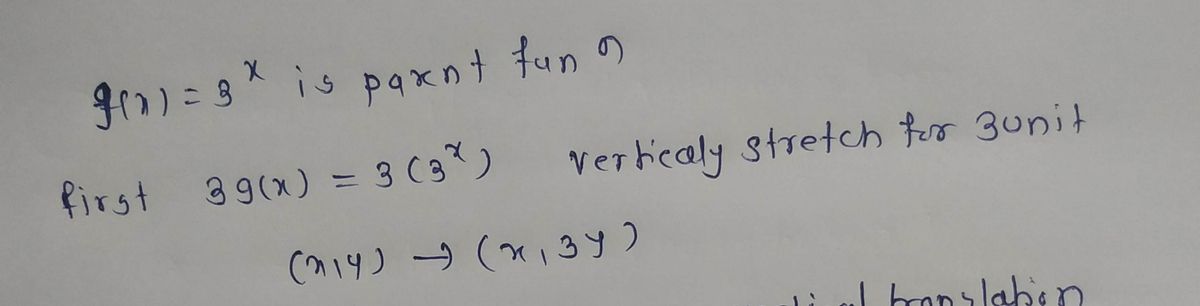 g(x) = 3^x is parnt fun n
first 3g(x) = 3(3^x) verticaly stretch for 3unit
(x,y) → (x,3y)
translation